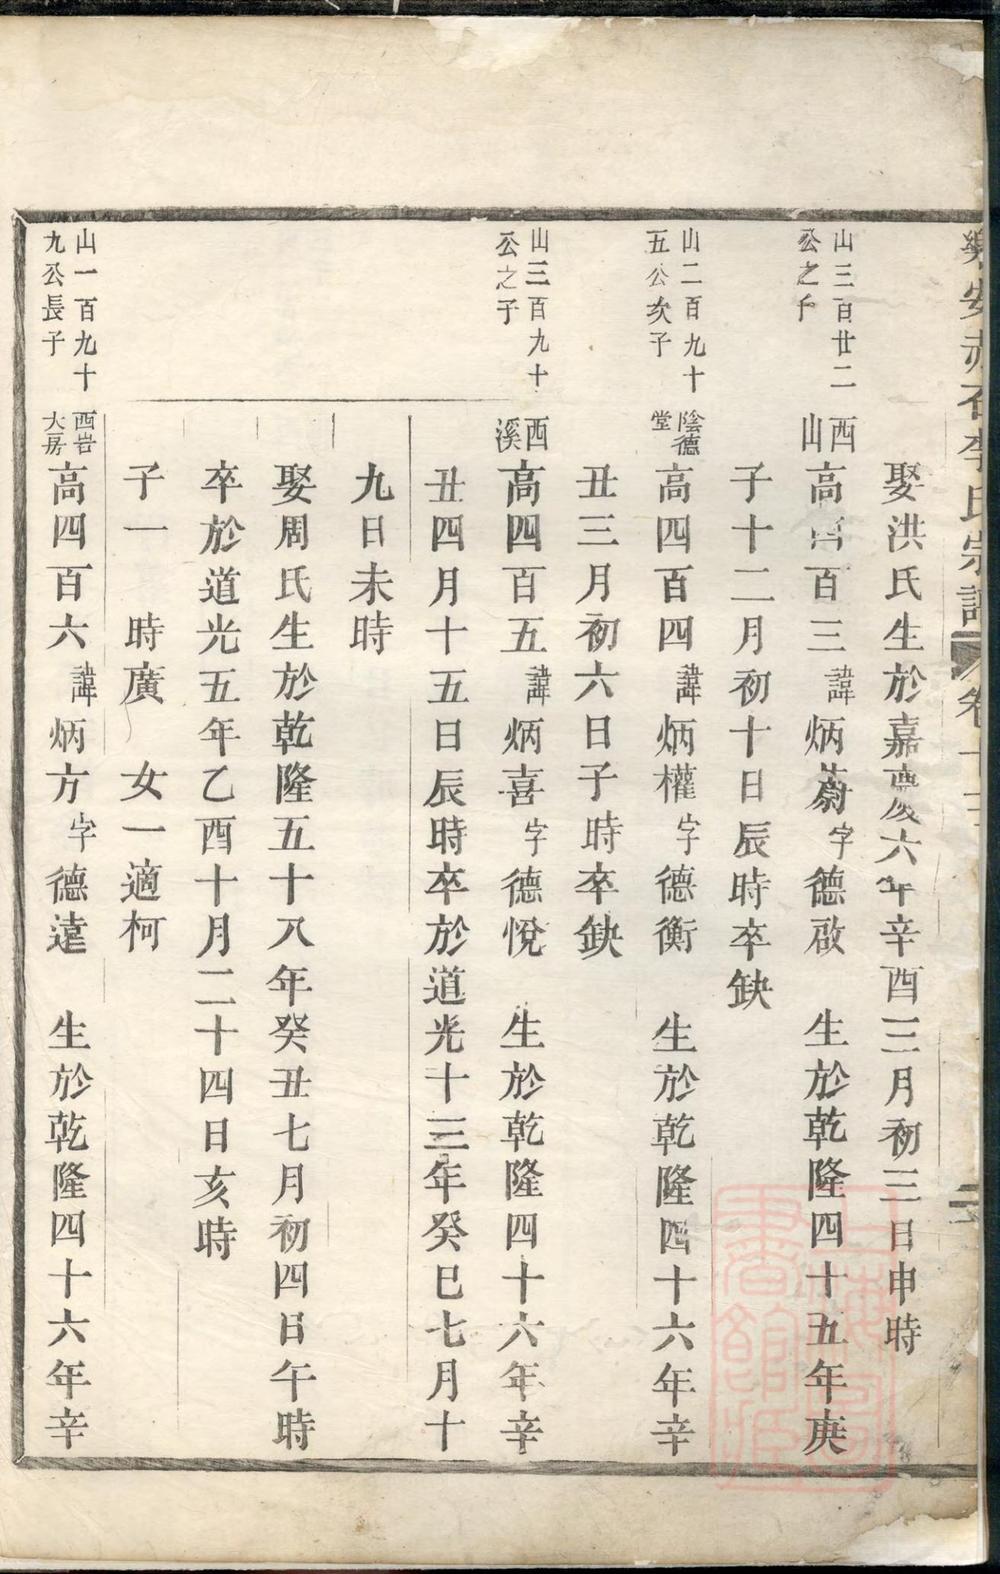 樂安赤石李氏宗譜 卷十
娶洪氏生於嘉慶六年辛酉三月初三日申時
山三百廿二
公之子
西山
高四百三諱炳蔚字德啟 生於乾隆四十五年庚
子十二月初十日辰時卒缺
山二百九十
五公次子
陰德堂
高四百四諱炳權字德衡 生於乾隆四十六年辛
丑三月初六日子時卒缺
山三百九十
公之子
西溪
高四百五諱炳喜字德悅 生於乾隆四十六年辛
丑四月十五日辰時卒於道光十三年癸巳七月十
九日未時
娶周氏生於乾隆五十八年癸丑七月初四日午時
卒於道光五年乙酉十月二十四日亥時
子一 時廣 女一適柯
山一百九十
九公長子
西岩
大房
高四百六諱炳方字德遠 生於乾隆四十六年辛